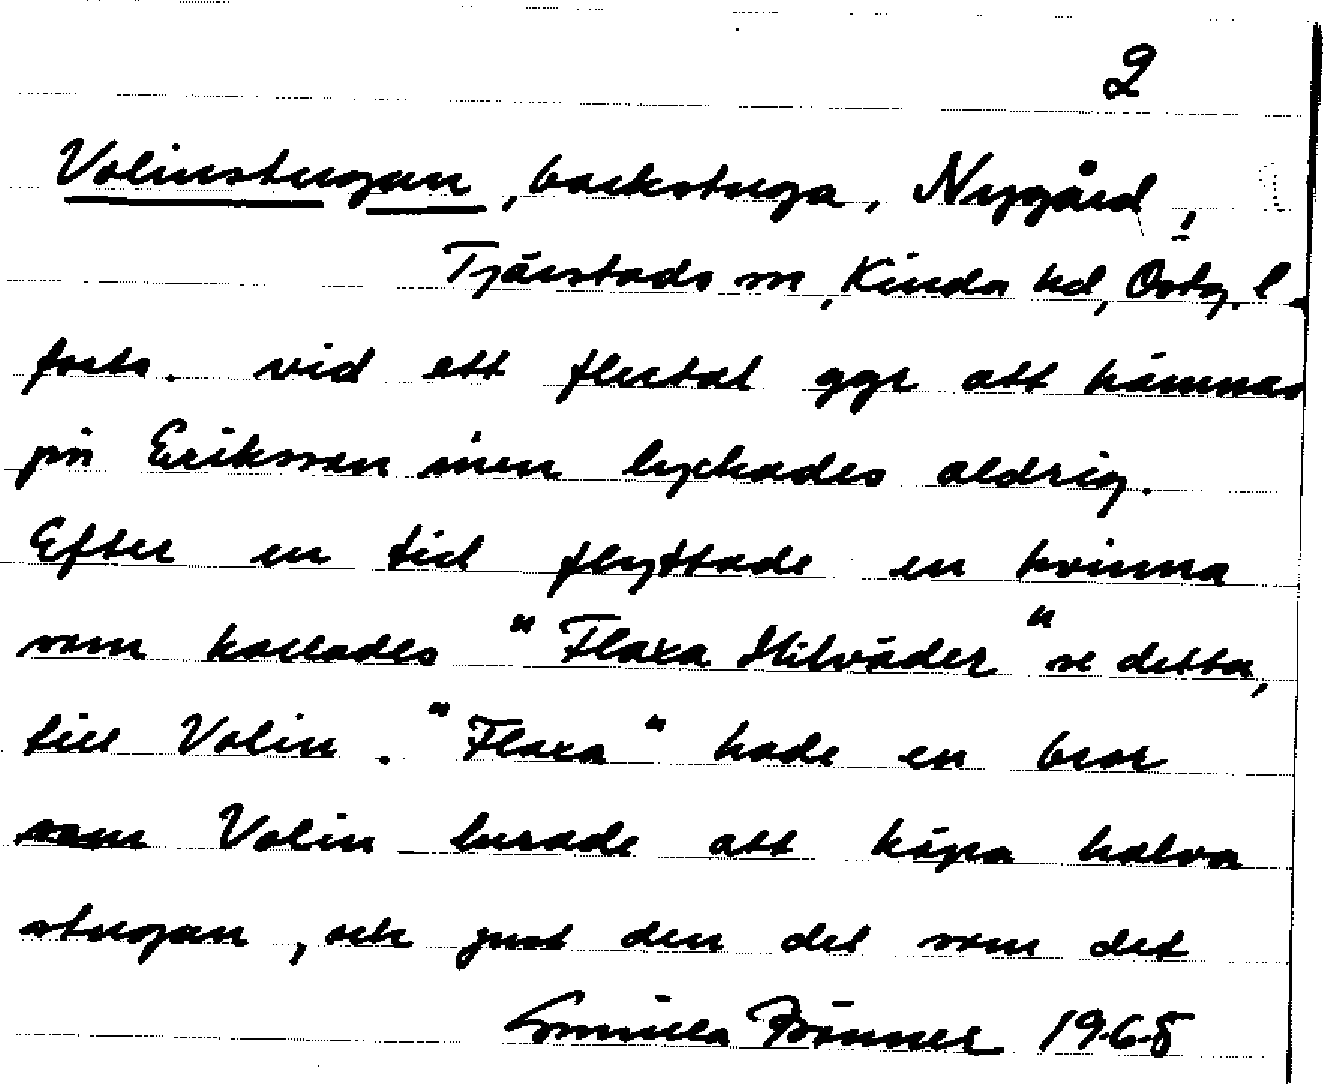 2
Volinstugan, backstuga, Nygård,
Tjärstads sn, Kinda hd, Östg. l.
forts. vid ett flertal ggr att hämnas
på Eriksson men lyckades aldrig.
Efter en tid flyttade en kvinna
som kallades "Flaxa Hilväder" se detta,
till Volin. "Flaxa" hade en bror
som Volin lurade att köpa halva
stugan, och just den del som det
1968